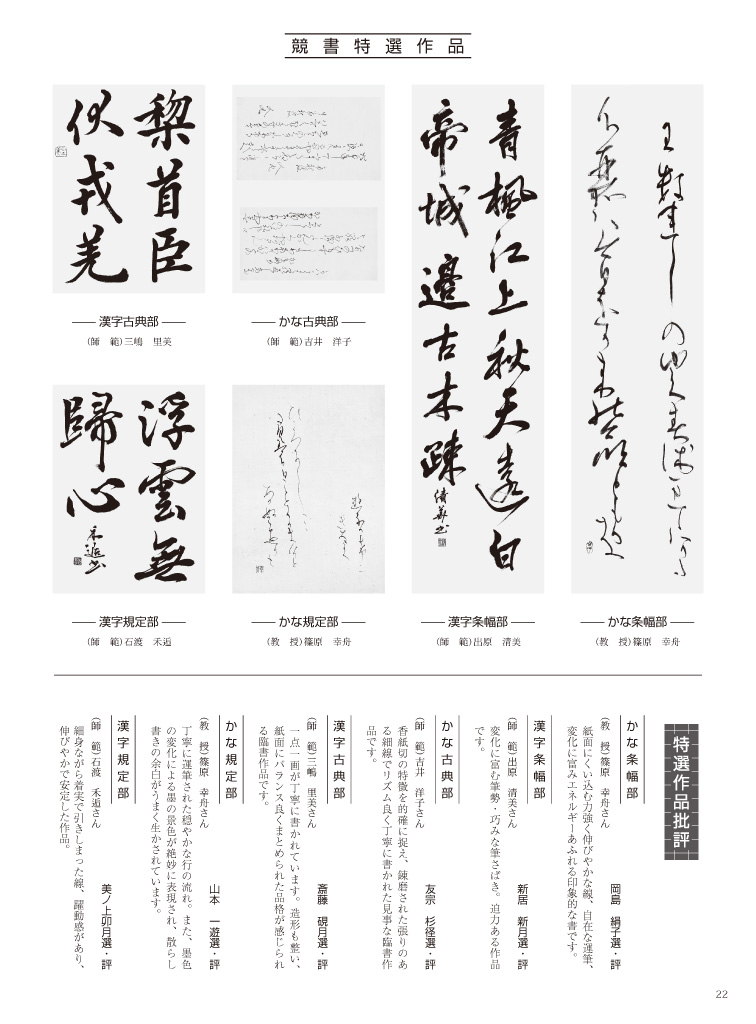 競書特選作品
黎首臣
伏戎羌
漢字古典部
(師 範)三嶋 里美
かな古典部
(師 範)吉井 洋子
青楓江上秋天遠白
帝城邊古木疎
漢字条幅部
(師 範)出原 清美
かな条幅部
(教 授)篠原 幸舟
浮雲無
歸心
漢字規定部
(師 範)石渡 禾遉
かな規定部
(教 授)篠原 幸舟
特選作品批評
かな条幅部
(教 授)篠原 幸舟さん
岡島 絹子選・評
紙面にくい込む力強く伸びやかな線、自在な運筆、
変化に富みエネルギーあふれる印象的な書です。
漢字条幅部
(師 範)出原 清美さん
新居 新月選・評
変化に富む筆勢・巧みな筆さばき。迫力ある作品
です。
かな古典部
(師 範)吉井 洋子さん
友宗 杉径選・評
香紙切の特徴を的確に捉え、錬磨された張りのあ
る細線でリズム良く丁寧に書かれた見事な臨書作
品です。
漢字古典部
(師 範)三嶋 里美さん
斎藤 硯月選・評
一点一画が丁寧に書かれています。造形も整い、
紙面にバランス良くまとめられた品格が感じられ
る臨書作品です。
かな規定部
(教 授)篠原 幸舟さん
山本 一遊選・評
丁寧に運筆された穏やかな行の流れ。また、墨色
の変化による墨の景色が絶妙に表現され、散らし
書きの余白がうまく生かされています。
漢字規定部
(師 範)石渡 禾遉さん
美ノ上卯月選・評
細身ながら着実で引きしまった線、躍動感があり、
伸びやかで安定した作品。
22